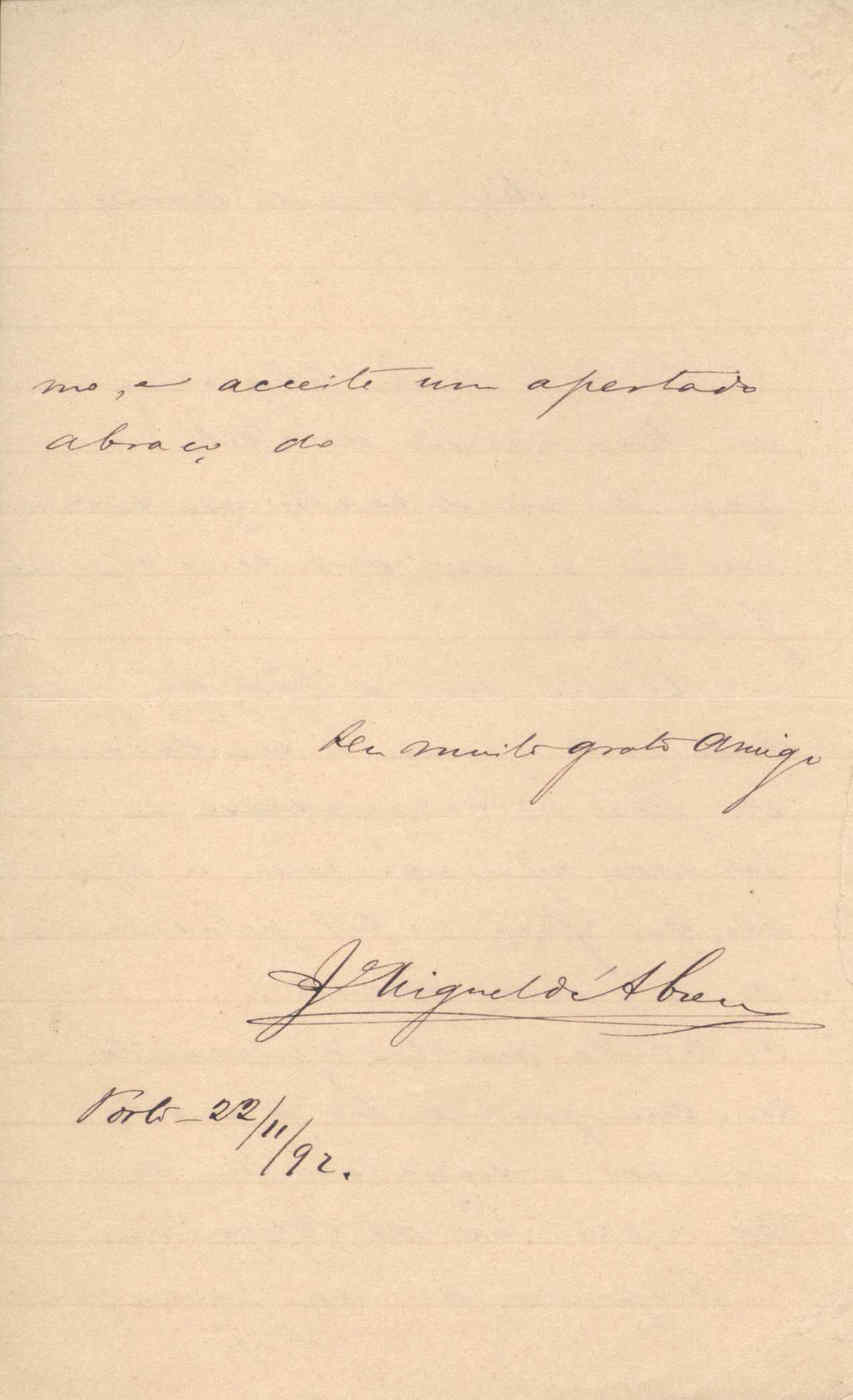 mo, e acceite um apertado
abraço do
Seu muito grato Amigo
J Miguel d'Abreu
Porto - 22/11/92.